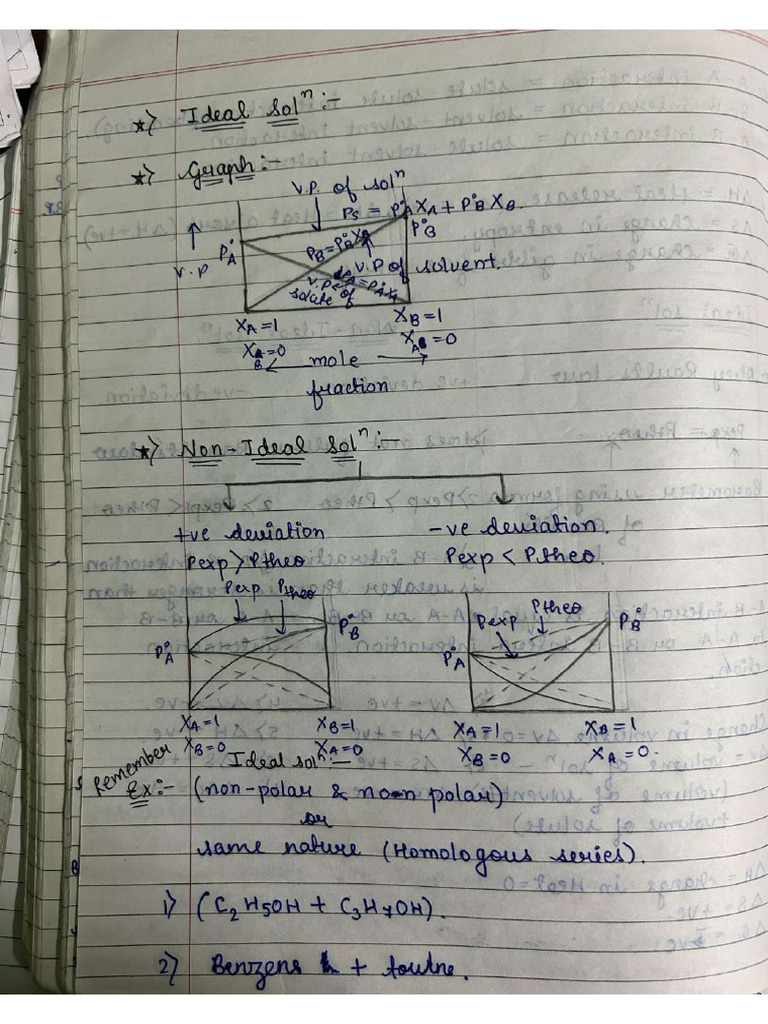 *) Ideal Solⁿ :-
*) Graph :-
V.P. of solⁿ
Ps = P°A XA + P°B XB.
P°B
P°A
V.P
PB = P°B XB
V.P of solvent.
V.P of
solute
PA = P°A XA
XA = 1
XB = 1
XB = 0
XA = 0
← mole →
fraction
*) Non-Ideal Solⁿ :-
+ve deviation
-ve deviation.
Pexp > Ptheo
Pexp < Ptheo.
Pexp Ptheo
P°B
P°A
Ptheo
Pexp
P°B
P°A
XA = 1
XB = 1
XA = 1
XB = 1
XB = 0
XA = 0
XB = 0
XA = 0.
Remember
Ideal solⁿ :-
Ex :- (non-polar & non polar)
or
same nature (Homologous series).
1) (C2H5OH + C3H7OH).
2) Benzens + toulne.